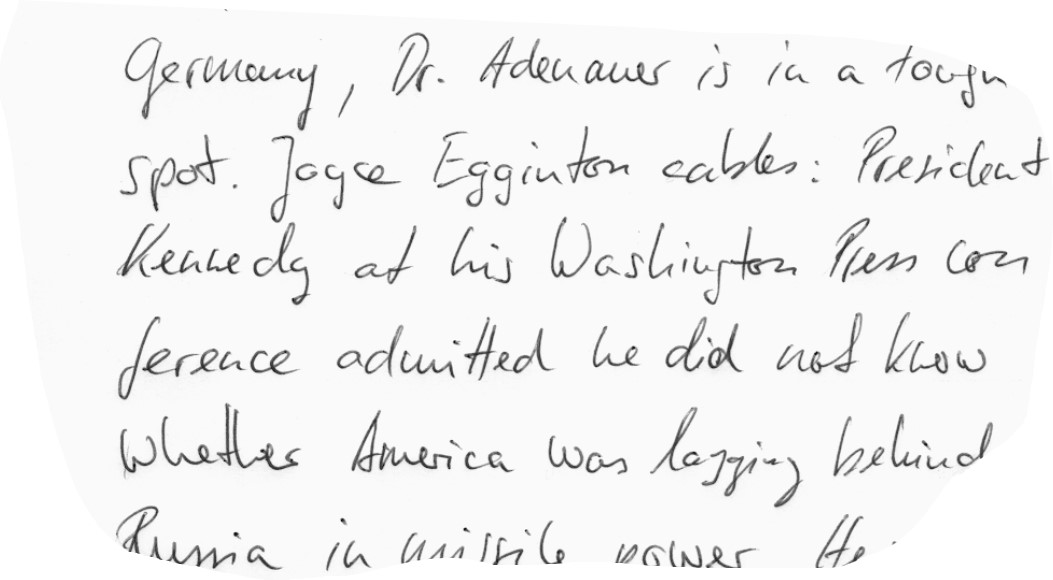 Germany, Dr. Adenauer is in a tough
spot. Joyce Egginton cables: President
Kennedy at his Washington Press con
ference admitted he did not know
whether America was lagging behind
Russia in missile power. He